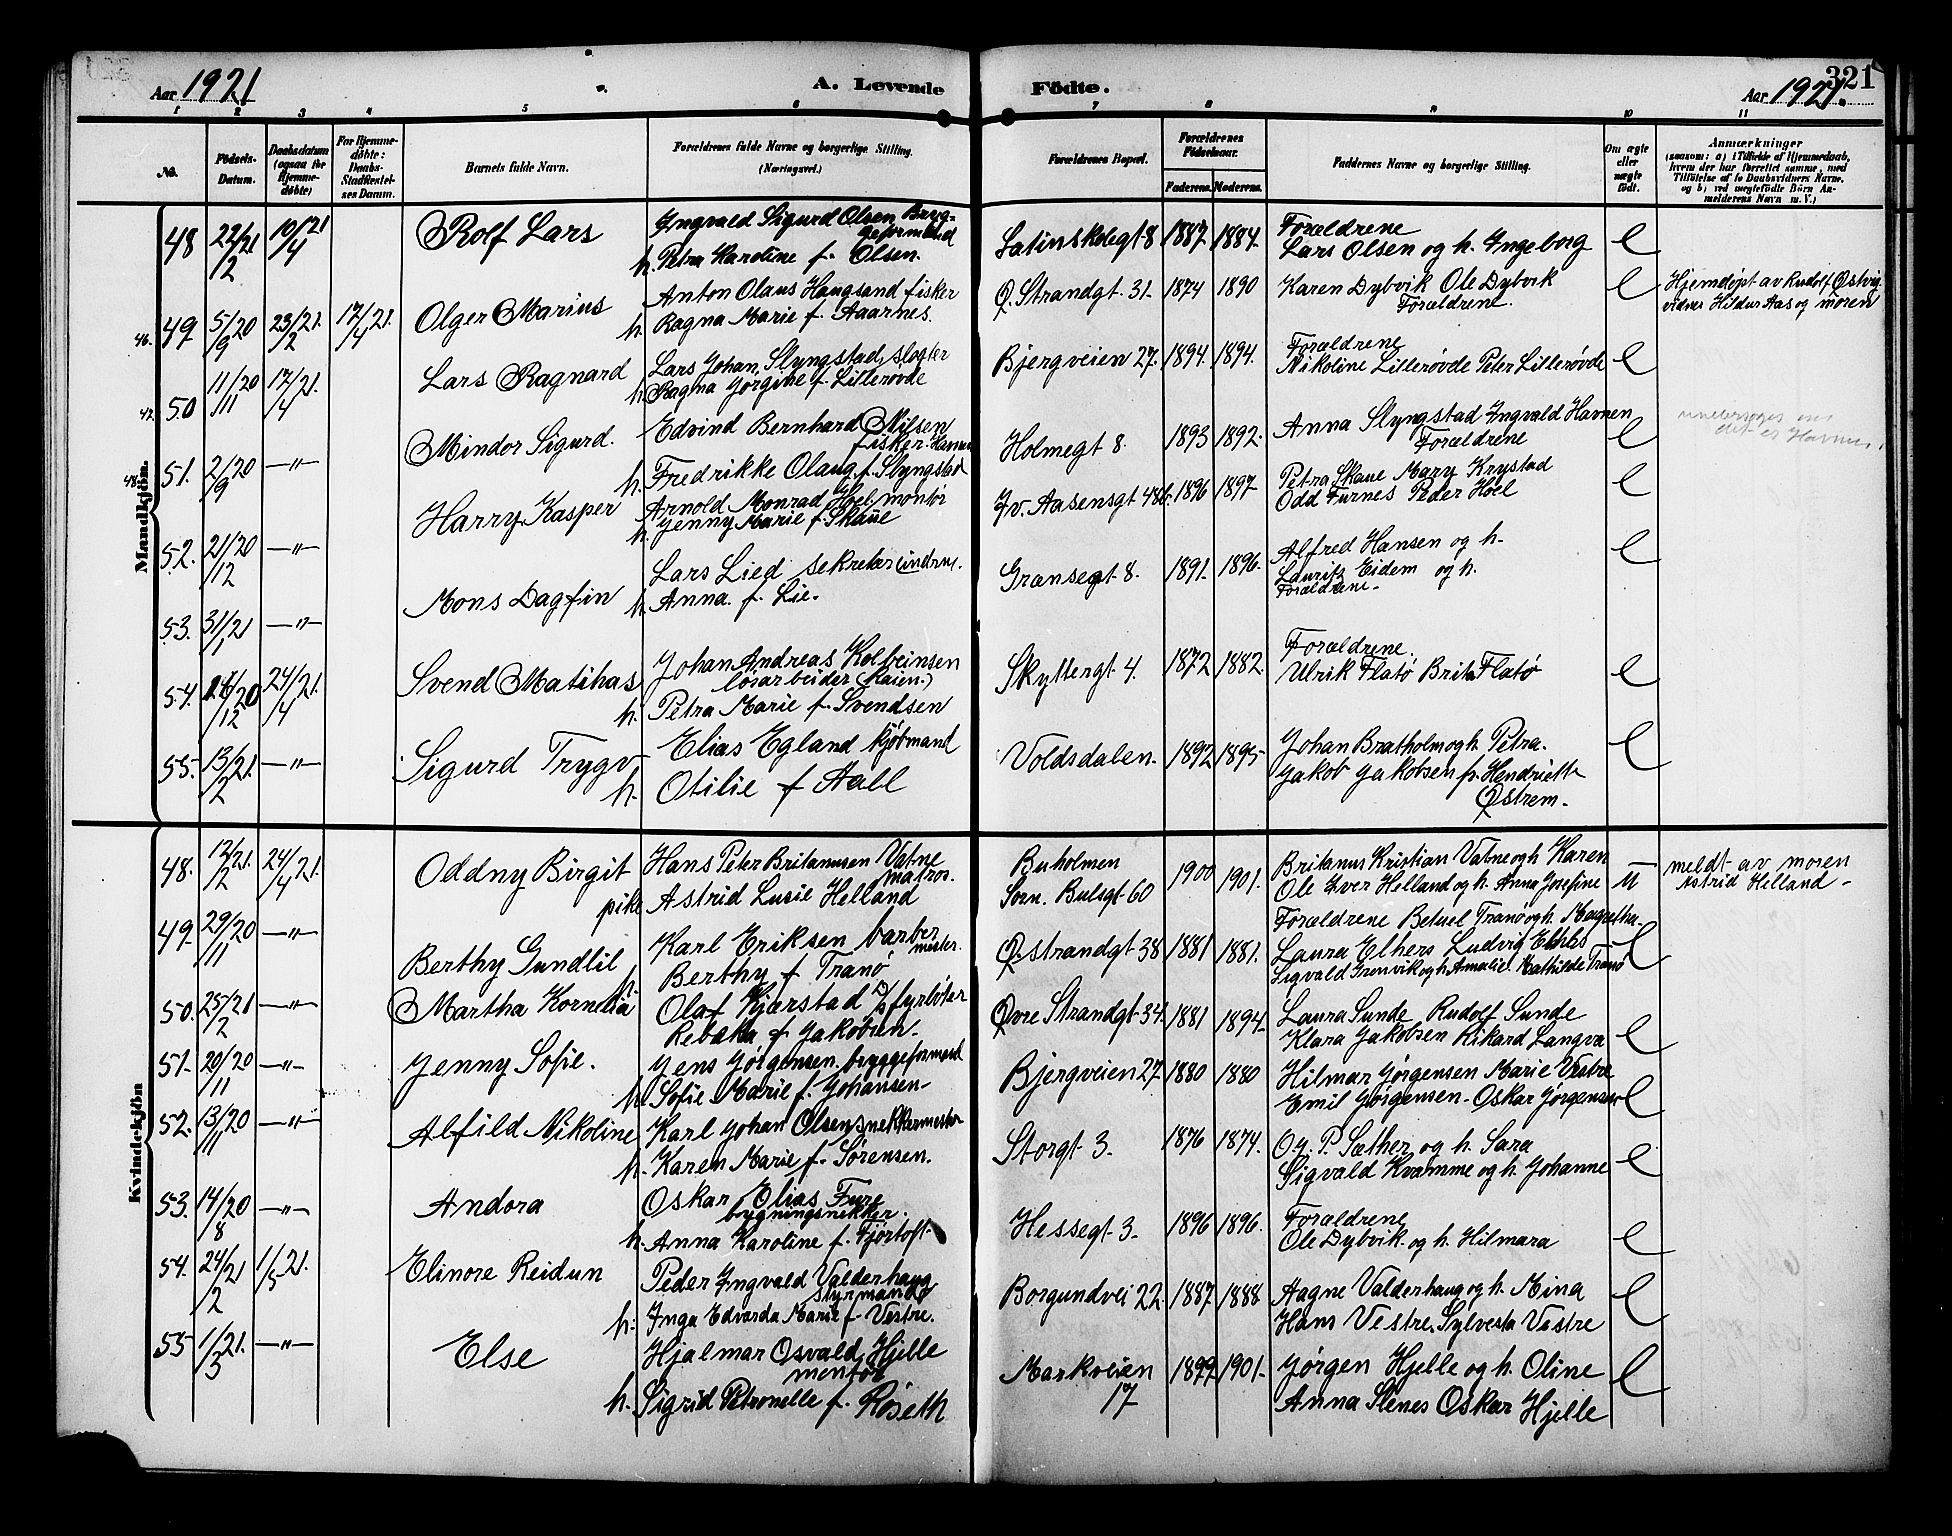 321
Aar 1921
A. Levende
Födte.
Aar 1921.
1 2 3 4 5 6 7 8 9 10 11
No.
Födsels-
Datum.
Daabsdatum
(ogsaa for
Hjemme-
döbte)
For Hjemme-
döbte:
Daabs-
Stadfæstel-
ses Datum.
Barnets fulde Navn.
Forældrenes fulde Navne og borgerlige Stilling.
(Næringsvei.)
Forældrenes Bopæl.
Forældrenes
Födselsaar.
Faderens. Moderens.
Faddernes Navne og borgerlige Stilling.
Om ægte
eller
uægte
födt.
Anmærkninger
(saasom: a) i Tilfælde af Hjemmedaab,
hvem der har forrettet samme, med
Tilföielse af to Daabsvidners Navne,
og b) ved uegtefödte Börn An-
melderens Navn m. V.)
Mandkjön.
48 22/21 12 10/21 4 Rolf Lars
Ingvald Sigurd Olsen Bryg-
geformand
h. Petra Karoline f. Olsen.
Latinskolegt 8 1887 1884.
Forældrene
Lars Olsen og h. Ingeborg e
46. 49 5/20 9 23/21. 2 17/21. 4 Olger Marius
Anton Olaus Haugsand fisker
h. Ragna Marie f. Aarnes.
Ø. Strandgt. 31- 1874 1890
Karen Dybvik Ole Dybvik
Forældrene. e
Hjemdøpt av Rudolf Østvig
vidner Hildur Aas og moren
47. 50 11/20 11 17/21. 4 Lars Ragnard
Lars Johan Slyngstad, slagter
h. Ragna Jørgine f. Lillerøvde
Bjergveien 27. 1894 1894.
Forældrene
Nikoline Lillerøvde Peter Lillerøvde e
48. 51. 2/20 9 —"— Mindor Sigurd.
Edvind Bernhard Nilsen
fisker.
h. Fredrikke Olaug f. Slyngstad
Holmegt 8. 1893 1892.
Anna Slyngstad Ingvald Havnen
Forældrene e
det er Havnen.
52. 21/20 12 —"— Harry Kasper
Arnold Monrad Hoel montør
h. Jenny Marie f. Skaue
Iv. Aasensgt 48b. 1896 1897
Petra Skaue Mary Krystad
Odd Furnes Peder Hoel e
53. 31/21 1 —"— Mons Dagfin
Lars Lied sekretær
h. Anna f. Lie.
Grænsegt 8. 1891. 1896.
Alfred Hansen og h.
Lauritz Eidem og h.
Forældrene. e
54. 20 12 24/21. 4 Svend Matihas
Johan Andreas Kolbeinsen
løsarbeider (Kaien.)
h. Petra Marie f. Svendsen
Skyttergt 4. 1872 1882.
Forældrene.
Ulrik Flatø Brita Flatø e
55. 13/21. 2 —"— Sigurd Trygv
Elias Egland kjøbmand
h. Otilie f Aall
Voldsdalen. 1892 1895
Johan Bratholm og h. Petra.
Jakob Jakobsen fr. Hendriette
Østrem. e
Kvindekjön
48. 12/21. 2 24/21. 4 Oddny Birgit
Hans Peter Britanusen Vatne
matros.
pike Astrid Lusie Helland
Buholmen
Sorn. Bulsgt 60 1900 1901.
Britanus Kristian Vatne og h. Karen
Ole Iver Helland og h. Anna Josefine U
meldt av moren
Astrid Helland –
49. 29/20 11 —"— Berthy Gundlil
Karl Eriksen barber
mester.
h. Berthy f Tranø
Ø. strandgt 38 1881 1881.
Forældrene Betuel Tranø og h. Margretha
Laura Elhers Ludvig Elhers
Sigvald Grønvik og h. Amalie. Mathilde Tranø e
50. 25/21 2 —"— Martha Kornelia
Olaf Kjærstad fyrbøter
Rebeka f Jakobsen.
Øvre Strandgt 34 1881 1894
Laura Sunde Rudolf Sunde
Klara Jakobsen Rikard Langva e
51. 20/20 11 —"— Jenny Sofie.
Jens Jørgensen bryggeformand
h. Sofie Marie f. Johansen
Bjergveien 27 1880 1880
Hilmar Jørgensen Marie Vestre
Emil Jørgensen. Oskar Jørgensen e
52. 13/20 11 —"— Alfild Nikoline
Karl Johan Olsen snekkermester
h. Karen Marie f. Sørensen.
Storgt 3. 1876 1874.
O. J. P. Sæther og h. Sara
Sigvald Kvamme og h. Johanne e
53. 14/20 8 —"— Andora
Oskar Elias Fure
bygningsnekker.
h. Anna Karoline f. Fjørtoft
Hessegt 3. 1896 1896.
Forældrene
Ole Dybvik og h. Hilmara e
54. 24/21 2 1/21. 5 Elinore Reidun
Peder Ingvald Valderhaug
styrmand
h. Inga Edvarda Marie f. Vestre.
Borgundvei 22. 1887 1888
Aagne Valderhaug og h. Mina
Hans Vestre, Sylvesta Vestre e
55 1/21. 3 —"— Else
Hjalmar Osvald Hjelle
montør
h. Sigrid Petronelle f. Røseth
Markveien
17 1899 1901.
Jørgen Hjelle og h. Oline
Anna Slenes Oskar Hjelle e